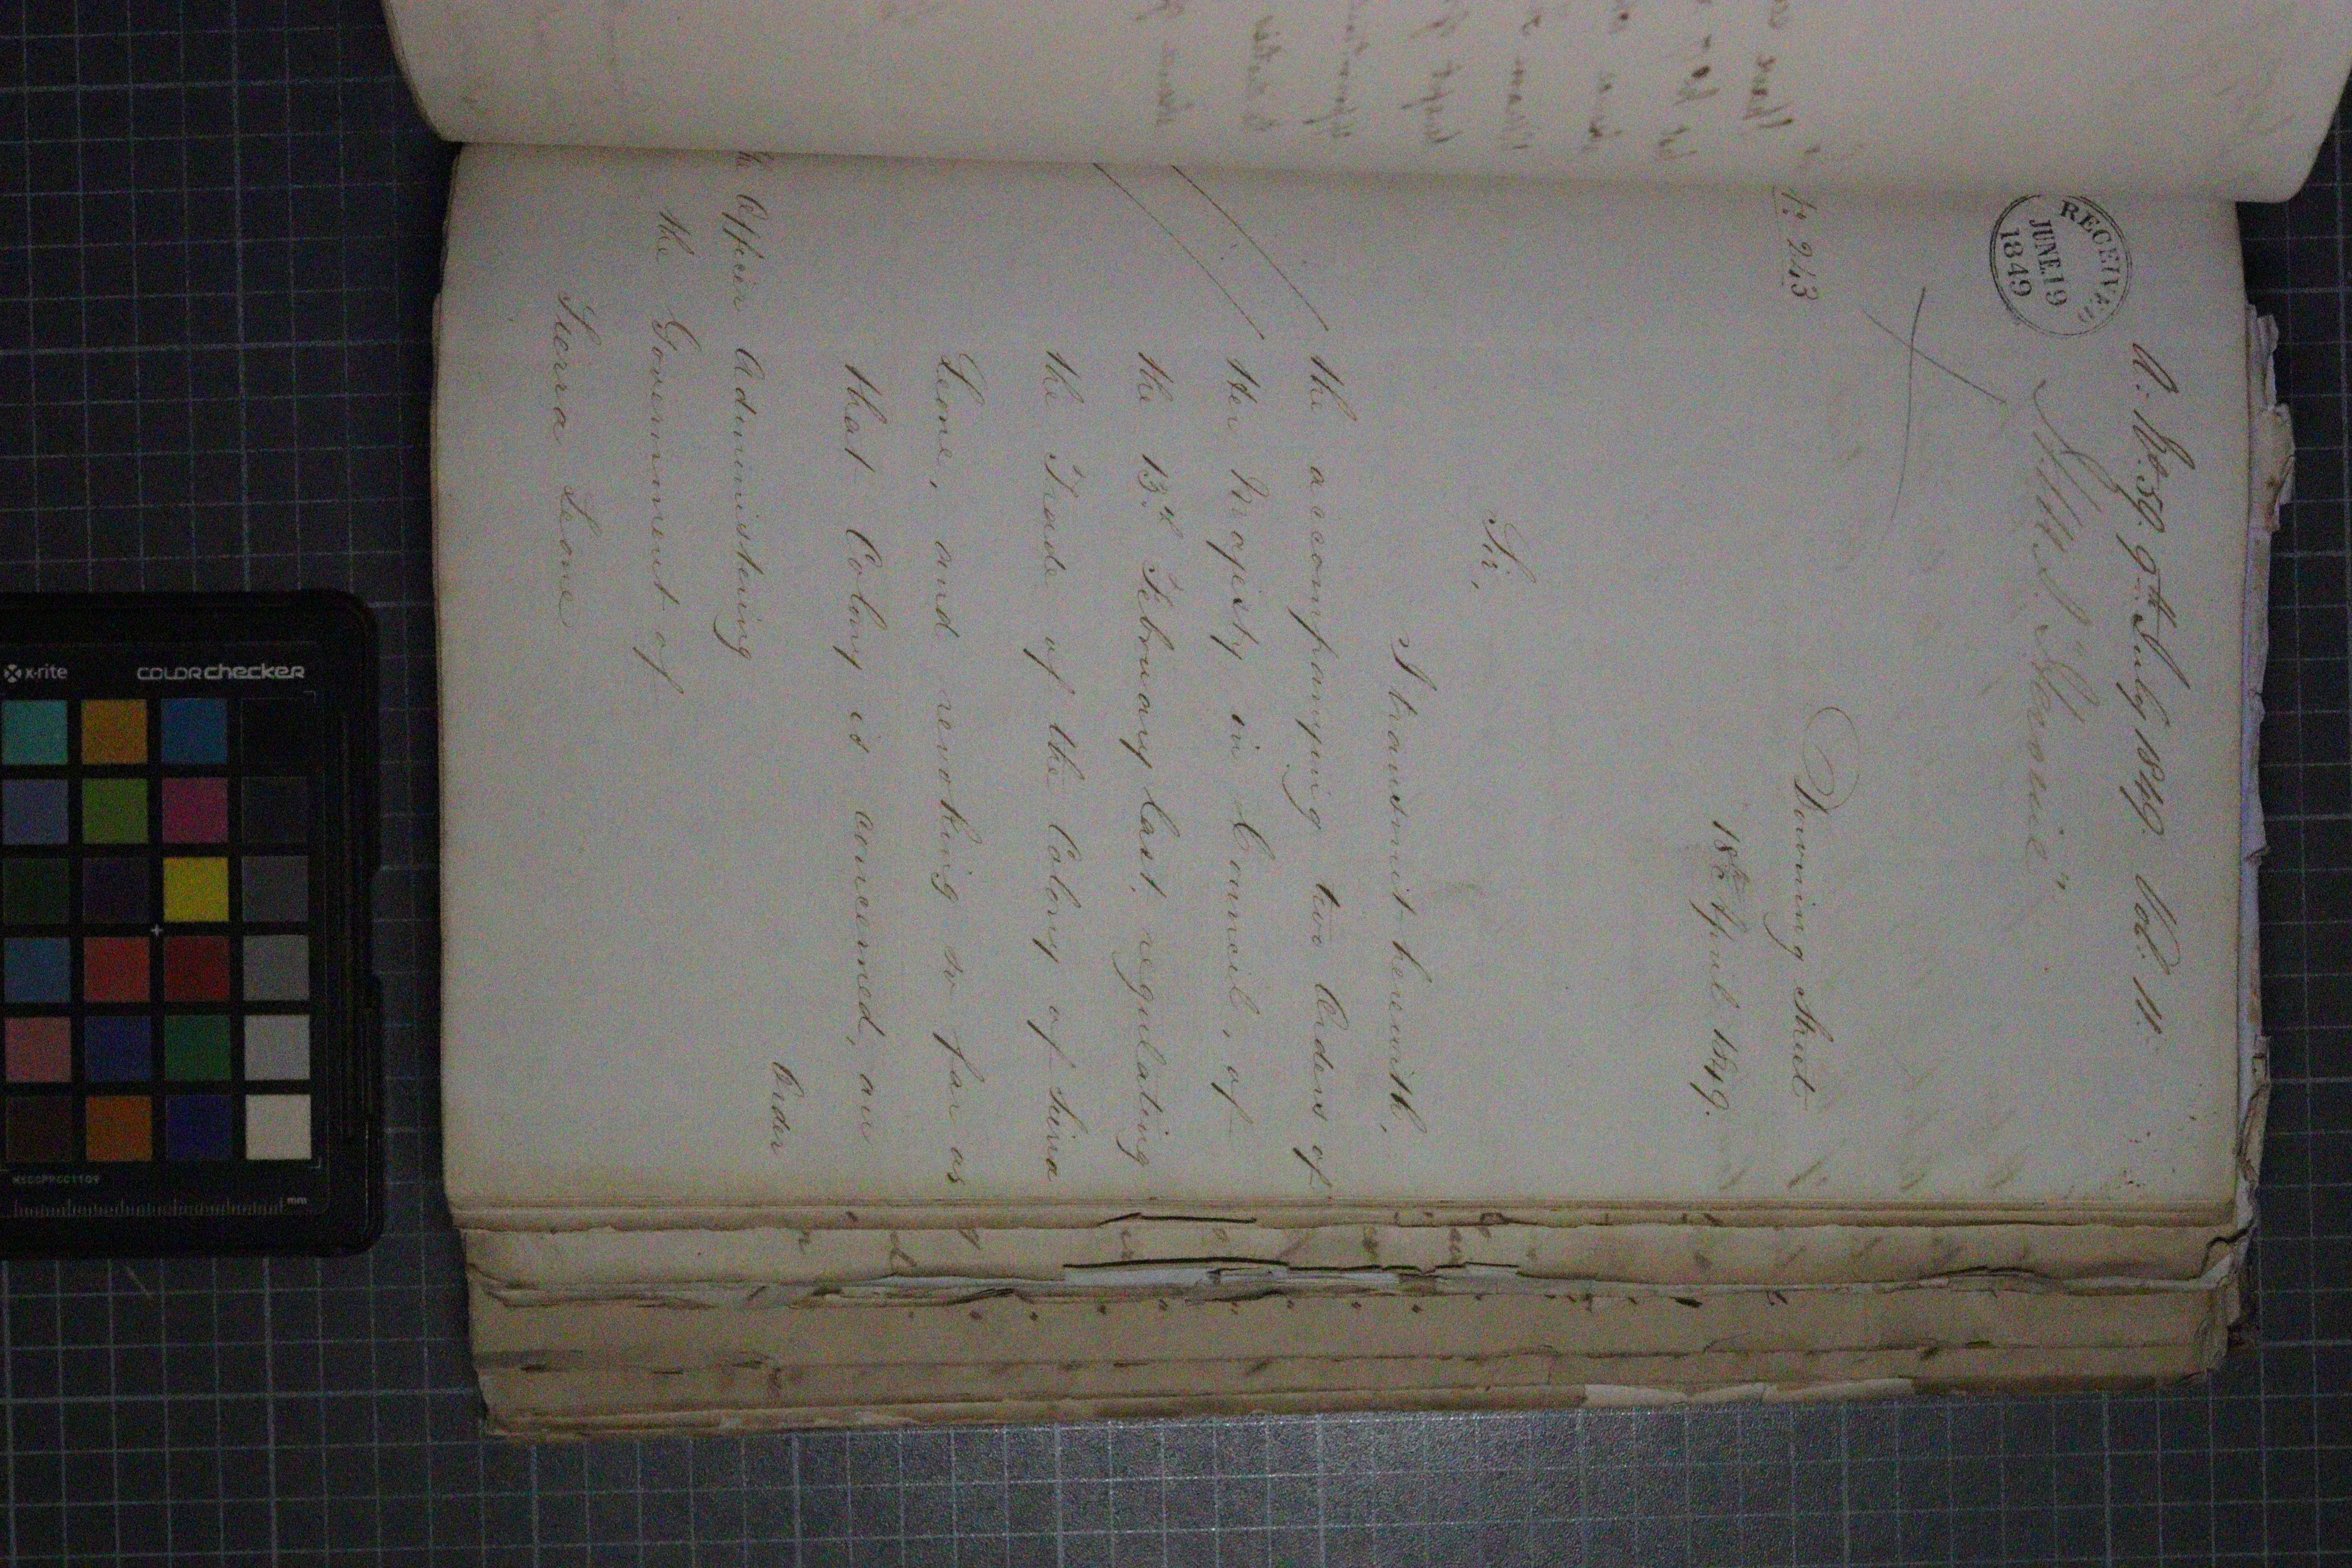 A. No. 59. 9th July 1849. Vol. 11.
RECEIVED
JUNE.19
1849
No. 243
Downing Street
18th April 1849.
Sir,
I transmit herewith,
the accompanying two Orders of
Her Majesty in Council, of
the 13th February last, regulating
the Trade of the Colony of Sierra
Leone, and revoking so far as
that Colony is concerned, an
Order
Officer Administering
the Government of
Sierra Leone
x·rite
colorchecker
mm